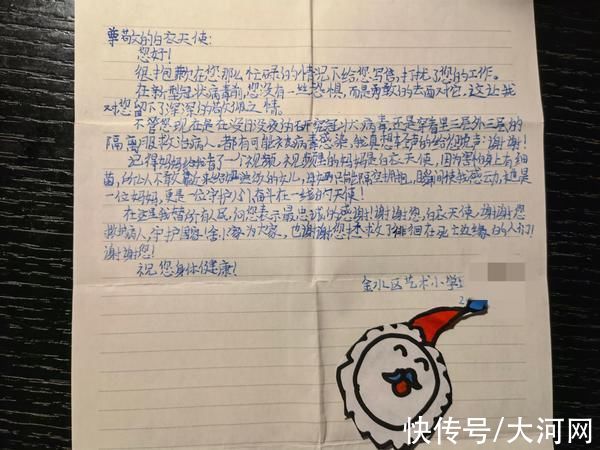 尊敬的白衣天使:
您好!
很抱歉在您那么忙碌的情况下给您写信,打扰了您的工作。
在新型冠状病毒前,您没有一丝恐惧,而是勇敢的去面对它,这让我
对您留下了深深的敬佩之情。
不管您现在是在没日没夜的研究冠状病毒,还是穿着里三层外三层的
隔离服救治病人,都有可能被病毒感染,我真想大声的给您说声:谢谢!
记得妈妈给我看了一个视频,视频里的妈妈是白衣天使,因为害怕身上有细
菌,
不敢
的女儿,
只能隔空拥抱,
瞬间使我感动,
是一
位妈妈,更是一位守护人们奋斗在一线的天使!
在这里我替所有人民向您表示最忠诚的感谢!谢谢您,白衣天使,谢谢您
救护病人,守护国家,舍小家为大家,也谢谢您拯救了徘徊在死亡边缘的人们!
谢谢您!
祝您身体健康!
金水区艺术小学
快传号/大河网